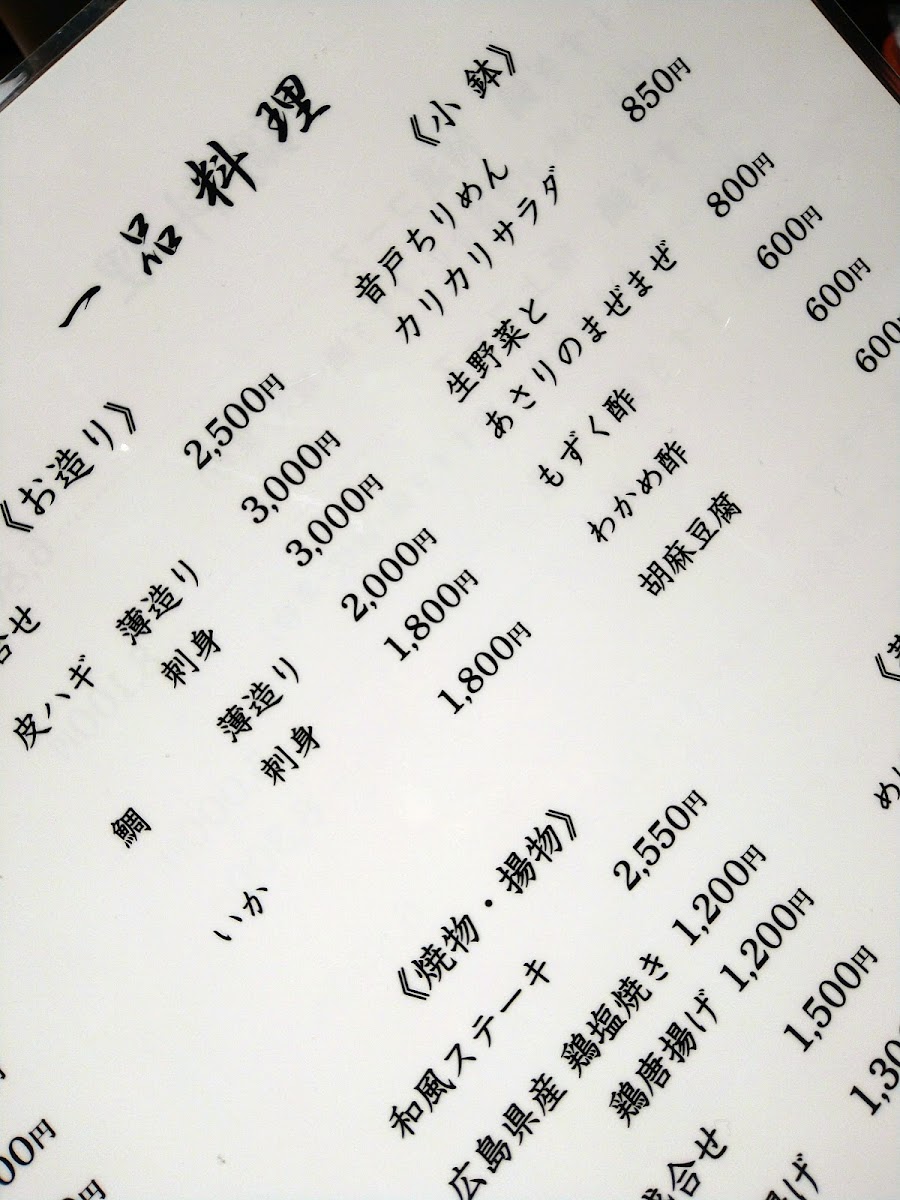 一品料理
《お造り》
合せ 2,500円
皮ハギ 薄造り 3,000円
刺身 3,000円
鯛 薄造り 2,000円
刺身 1,800円
いか 1,800円
《小鉢》
音戸ちりめん
カリカリサラダ 850円
生野菜と
あさりのまぜまぜ 800円
もずく酢 600円
わかめ酢 600円
胡麻豆腐 600円
《焼物・揚物》
和風ステーキ 2,550円
広島県産 鶏塩焼き 1,200円
鶏唐揚げ 1,200円
合せ 1,500円